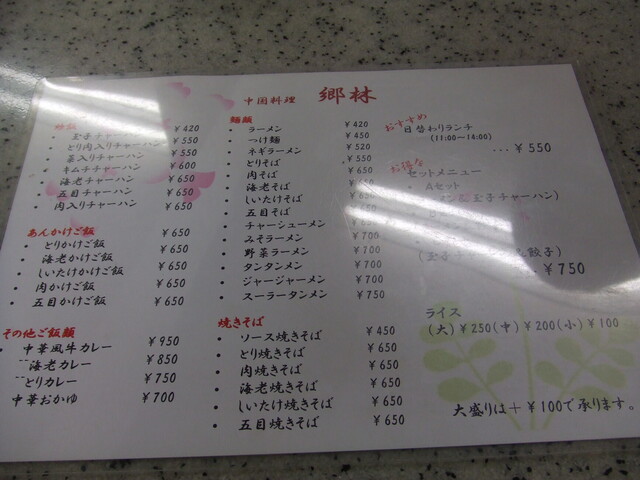 中国料理 郷林
炒飯
・ 玉子チャーハン ¥420
・ とり肉入りチャーハン ¥550
・ 葉入りチャーハン ¥550
・ キムチチャーハン ¥600
・ 海老チャーハン ¥650
・ 五目チャーハン ¥650
・ 肉入りチャーハン ¥650
あんかけご飯 ¥650
・ とりかけご飯 ¥650
・ 海老かけご飯 ¥650
・ しいたけかけご飯 ¥650
・ 肉かけご飯 ¥650
・ 五目かけご飯 ¥650
その他ご飯類
・ 中華風牛カレー ¥950
〃海老カレー ¥850
〃とりカレー ¥750
中華おかゆ ¥700
麺類
・ ラーメン ¥420
・ つけ麺 ¥450
・ ネギラーメン ¥520
・ とりそば ¥550
・ 肉そば ¥650
・ 海老そば
・ しいたけそば
・ 五目そば
・ チャーシューメン
・ みそラーメン ¥700
・ 野菜ラーメン ¥700
・ タンタンメン ¥700
・ ジャージャーメン ¥700
・ スーラータンメン ¥750
焼きそば
・ ソース焼きそば ¥450
・ とり焼きそば ¥650
・ 肉焼きそば ¥650
・ 海老焼きそば ¥650
・ しいたけ焼きそば ¥650
・ 五目焼きそば ¥650
おすすめ
日替わりランチ
(11:00~14:00)
... ¥550
お得な
セットメニュー
・ Aセット
玉子チャーハン)
餃子)
¥750
ライス
(大)¥250(中)¥200(小)¥100
大盛りは+¥100で承ります。